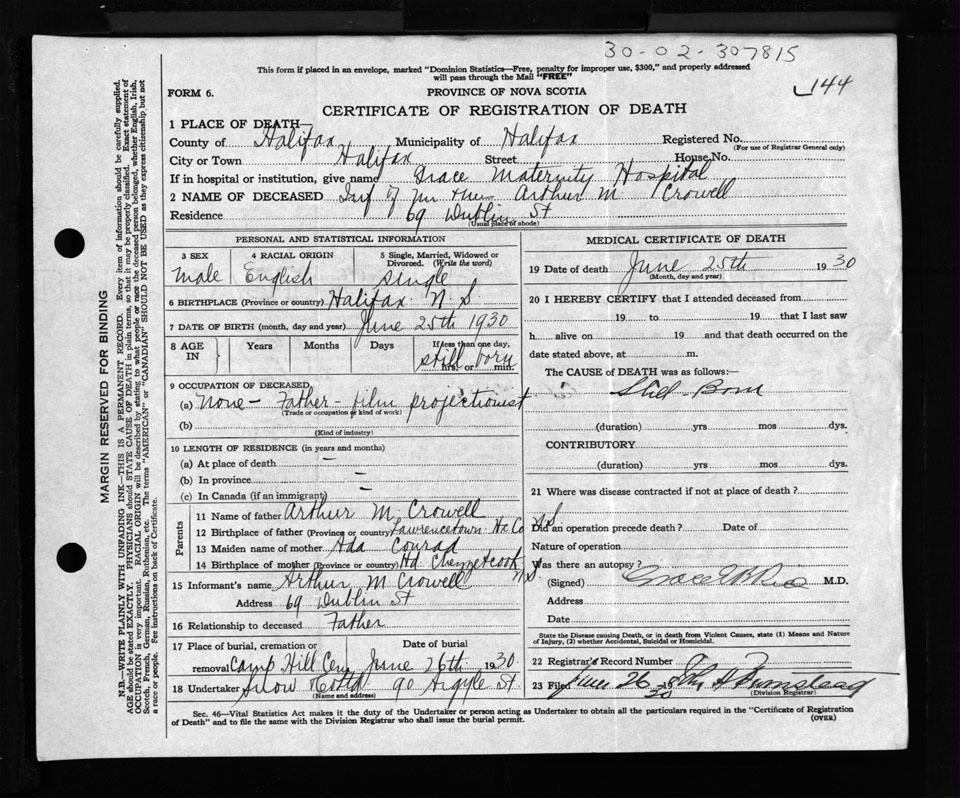 30-02-307815
This form if placed in an envelope, marked "Dominion Statistics—Free, penalty for improper use, $300," and properly addressed
will pass through the Mail "FREE"
144
FORM 6.
PROVINCE OF NOVA SCOTIA
CERTIFICATE OF REGISTRATION OF DEATH
1 PLACE OF DEATH—
County of Halifax Municipality of Halifax Registered No.
(For use of Registrar General only)
City or Town Halifax Street House No.
If in hospital or institution, give name Grace Maternity Hospital
2 NAME OF DECEASED Inf of Mr & Mrs Arthur M Crowell
Residence 69 Dublin St
(Usual place of abode)
PERSONAL AND STATISTICAL INFORMATION
3 SEX 4 RACIAL ORIGIN 5 Single, Married, Widowed or
Divorced. (Write the word)
Male English Single
6 BIRTHPLACE (Province or country) Halifax N.S.
7 DATE OF BIRTH (month, day and year) June 25th 1930
8 AGE IN Years Months Days If less than one day,
still born hrs. or min.
9 OCCUPATION OF DECEASED
(a) None - Father - film projectionist
(Trade or occupation or kind of work)
(b)
(Kind of industry)
10 LENGTH OF RESIDENCE (in years and months)
(a) At place of death –
(b) In province –
(c) In Canada (if an immigrant) –
Parents
11 Name of father Arthur M. Crowell
12 Birthplace of father (Province or country) Lawrencetown Hx Co N.S
13 Maiden name of mother Ada Conrad
14 Birthplace of mother (Province or country) Hd Chezzetcook NS
15 Informant's name Arthur M Crowell
Address 69 Dublin St
16 Relationship to deceased Father
17 Place of burial, cremation or Date of burial
removal Camp Hill Cem June 26th 1930
18 Undertaker Snow 90 Argyle St
(Name and address)
MEDICAL CERTIFICATE OF DEATH
19 Date of death June 25th 1930
(Month, day and year)
20 I HEREBY CERTIFY that I attended deceased from
19 to 19 that I last saw
h alive on 19 and that death occurred on the
date stated above, at m.
The CAUSE of DEATH was as follows:—
Still Born
(duration) yrs mos dys.
CONTRIBUTORY
(duration) yrs mos dys.
21 Where was disease contracted if not at place of death?
Did an operation precede death? Date of
Nature of operation
Was there an autopsy?
(Signed) Grace Rice M.D.
Address
Date
State the Disease causing Death, or in death from Violent Causes, state (1) Means and Nature
of Injury, (2) whether Accidental, Suicidal or Homicidal.
22 Registrar's Record Number
23 Filed June 26 1930
(Division Registrar)
Sec. 46—Vital Statistics Act makes it the duty of the Undertaker or person acting as Undertaker to obtain all the particulars required in the "Certificate of Registration
of Death" and to file the same with the Division Registrar who shall issue the burial permit. (OVER)
MARGIN RESERVED FOR BINDING
N.B.—WRITE PLAINLY WITH UNFADING INK—THIS IS A PERMANENT RECORD. Every item of information should be carefully supplied.
AGE should be stated EXACTLY. PHYSICIANS should STATE CAUSE OF DEATH in plain terms, so that it may be properly classified. Exact statement of
OCCUPATION is very important. RACIAL ORIGIN will be described by stating to what people or race the deceased person belonged, whether English, Irish,
Scotch, French, German, Russian, Ruthenian, etc. The terms "AMERICAN" or "CANADIAN" SHOULD NOT BE USED as they express citizenship but not
a race or people. See instructions on back of Certificate.